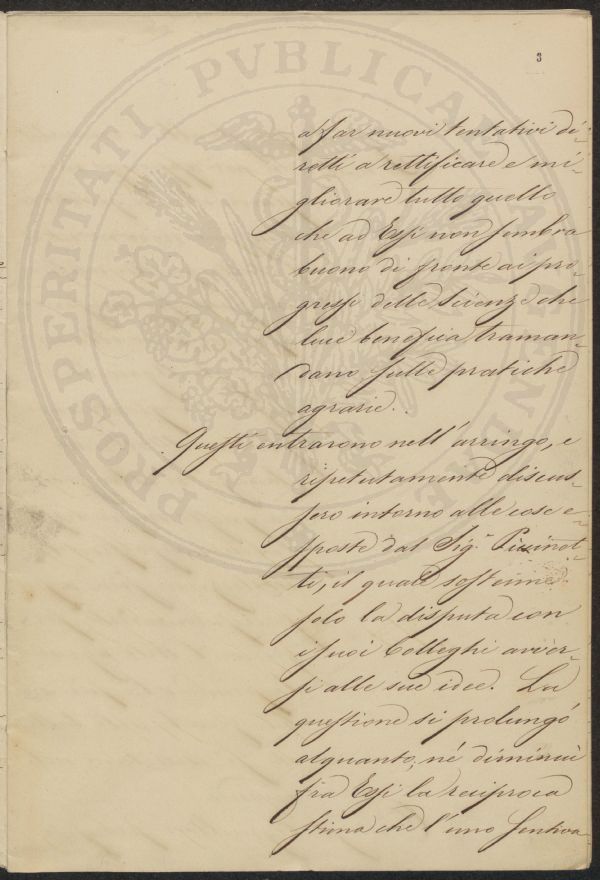 3
a far nuovi tentativi di-
retti a rettificare e mi-
gliorare tutto quello
che ad Essi non sembra
buono di fronte ai pro-
gressi delle scienze che
luce benefica traman-
dano sulle pratiche
agrarie.
Questi entrarono nell'arringo, e
ripetutamente discus-
sero intorno alle cose e-
sposte dal Sig.r
ti, il quale sostenne
solo la disputa con
i suoi Colleghi avver-
si alle sue idee. La
questione si prolungó
alquanto, né diminuì
fra Essi la reciproca
stima che l'uno sentiva
PROSPERITATI PVBLICAE AVGENDAE